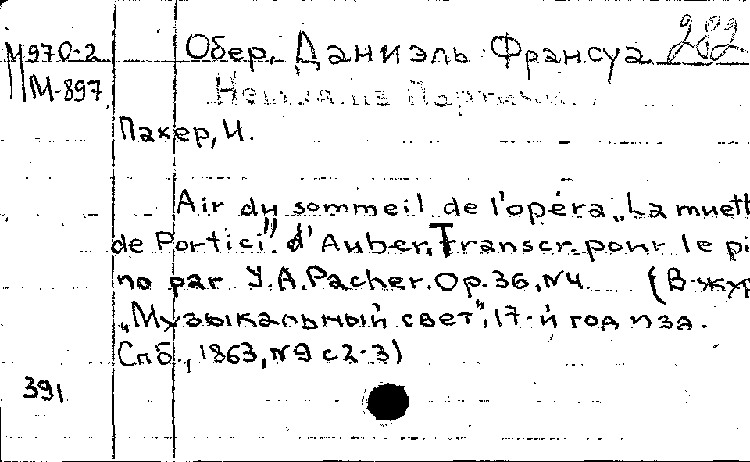 М970-2 Обер, Даниэль Франсуа 282
М-897 Немая из Портичи.
Пакер, И.
Air du sommeil de l'opéra „La muett
de Portici". d'Auber. Transcr. pour le pi
no par Y.A. Pacher. Op. 36, N4 (В жур
„Музыкальный свет", 17-й год изд.
Спб., 1863, N9 с 2-3)
391